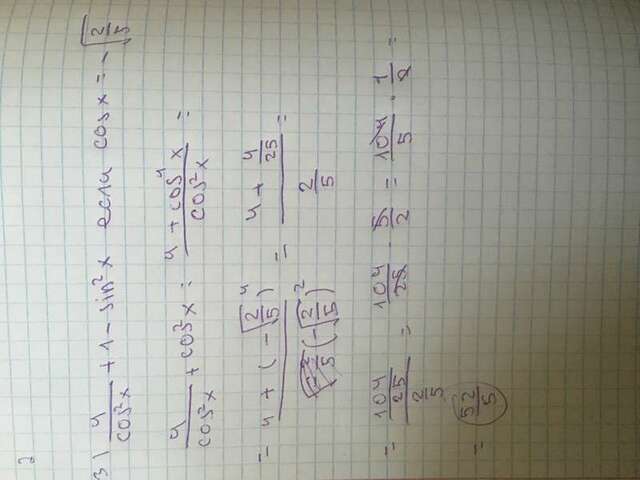 3) 4/cos²x + 1 - sin²x если cos x = -√(2/5)
4/cos²x + cos²x = (4 + cos⁴x)/cos²x =
= (4 + (-√(2/5))⁴)/(-√(2/5))² = (4 + 4/25)/(2/5) =
= (104/25)/(2/5) = 104/25 · 5/2 = 104/5 · 1/2 =
= 52/5